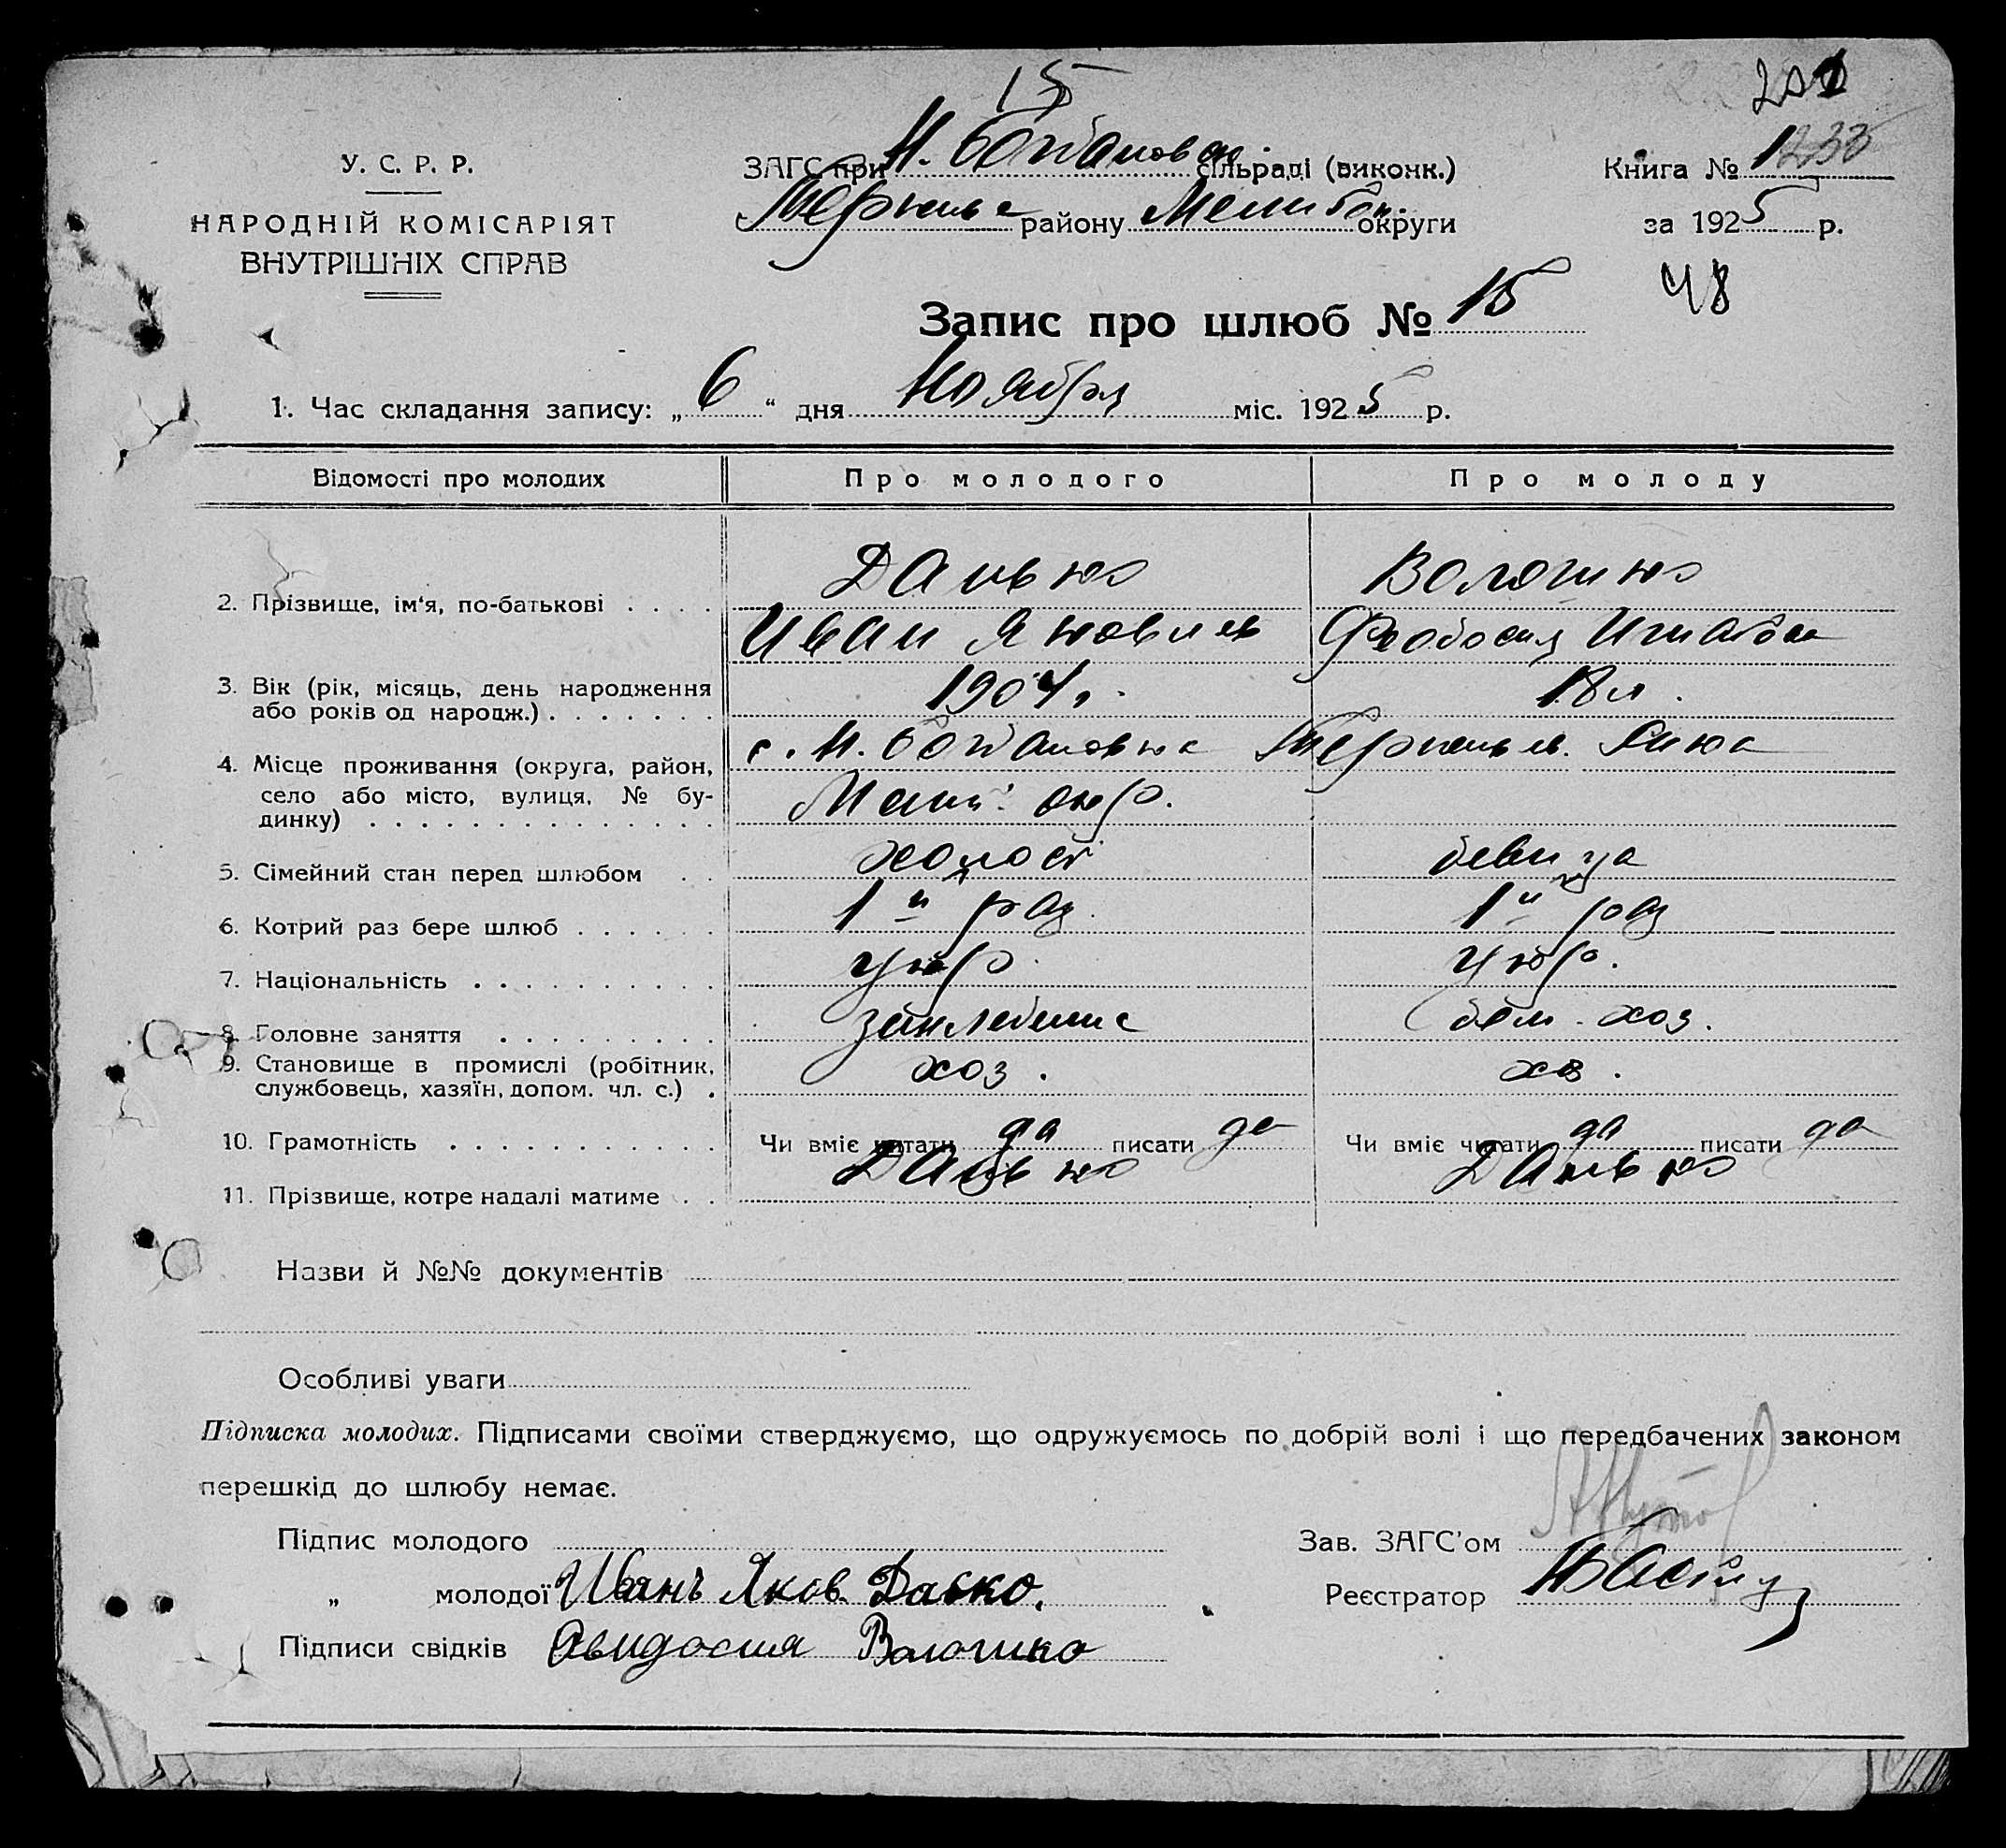 15
201
У. С. Р. Р.
НАРОДНІЙ КОМІСАРІЯТ
ВНУТРІШНІХ СПРАВ
ЗАГС при Н. Богданов сільраді (виконк.)
района району Мелитоп. округи
Книга № 1 233
за 1925 р.
48
Запис про шлюб № 15
1. Час складання запису: „ 6 “ дня Ноября міс. 1925 р.
Відомості про молодих
Про молодого
Про молоду
2. Прізвище, ім‘я, по-батькові
Данько
Волошко
Иван Яковлев
Феодосия Игнатов
3. Вік (рік, місяць, день народження або років од народж.)
1904 г.
18 л.
4. Місце проживання (округа, район, село або місто, вулиця, № будинку)
с. Н. Богдановка
Мели. окр.
5. Сімейний стан перед шлюбом
холост
девица
6. Котрий раз бере шлюб
1й раз
1й раз
7. Національність
укр.
укр.
8. Головне заняття
дом. хоз.
9. Становище в промислі (робітник, службовець, хазяїн, допом. чл. с.)
хоз.
хоз.
10. Грамотність
Чи вміє читати да писати да
Чи вміє читати да писати да
11. Прізвище, котре надалі матиме
Данько
Данько
Назви й №№ документів
Особливі уваги
Підписка молодих. Підписами своїми стверджуємо, що одружуємось по добрій волі і що передбачених законом
перешкід до шлюбу немає.
Підпис молодого
Зав. ЗАГС’ом
„ молодої Иванъ Яков. Данко.
Реєстратор
Підписи свідків Волошко